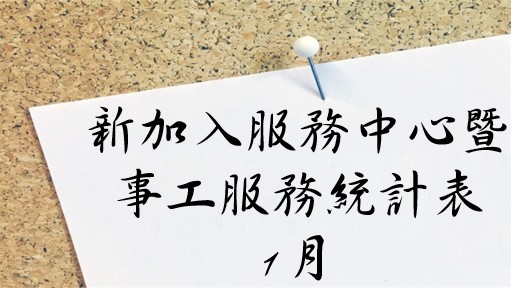 新加入服務中心暨
事工服務統計表
1月